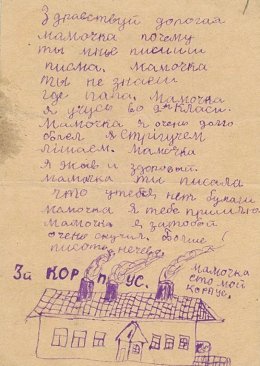 Здравствуй дорогая
мамочка почему
ты мнье пишиш
писма. Мамочка
ты не знаеш
где папа. Мамочка
я учусь во 2м класи.
Мамочка я очень долго
болел я стригучем
лишаем. Мамочка
я жыв и здоровый.
мамочка ты писала
что утебя нет бумаги
мамочка я тебе пришлю
Мамочка я затобой
очень скучил. больше
писать нечево!
3й КОРПУС.
мамочка
сто мой
корпус.